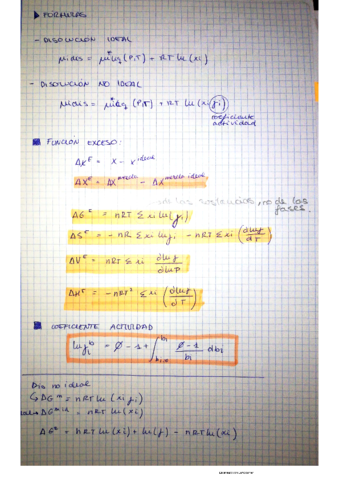 ▶ FÓRMULAS
- DISOLUCIÓN IDEAL
μi dis = μ*i liq (P,T) + RT ln (xi)
- DISOLUCIÓN NO IDEAL
μi dis = μ*i liq (P,T) + RT ln (xi γi)
coeficiente
actividad
■ FUNCIÓN EXCESO:
ΔX^E = X - X^ideal
ΔX^E = ΔX^mezcla - ΔX^mezcla ideal
de las sustancias, no de las
fases.
ΔG^E = nRT Σ xi ln(γi)
ΔS^E = -nR Σ xi ln γi - nRT Σ xi (∂lnγi/∂T)
ΔV^E = nRT Σ xi ∂lnγi/∂P
ΔH^E = -nRT² Σ xi (∂lnγi/∂T)
■ COEFICIENTE ACTIVIDAD
ln γi^b = Ø - 1 + ∫ Ø-1/bi dbi
Dis no ideal
↳ ΔG^m = nRT ln (xi γi)
ΔG^m id = nRT ln (xi)
ΔG^E = nRT ln(xi) + ln(γ) - nRT ln(xi)